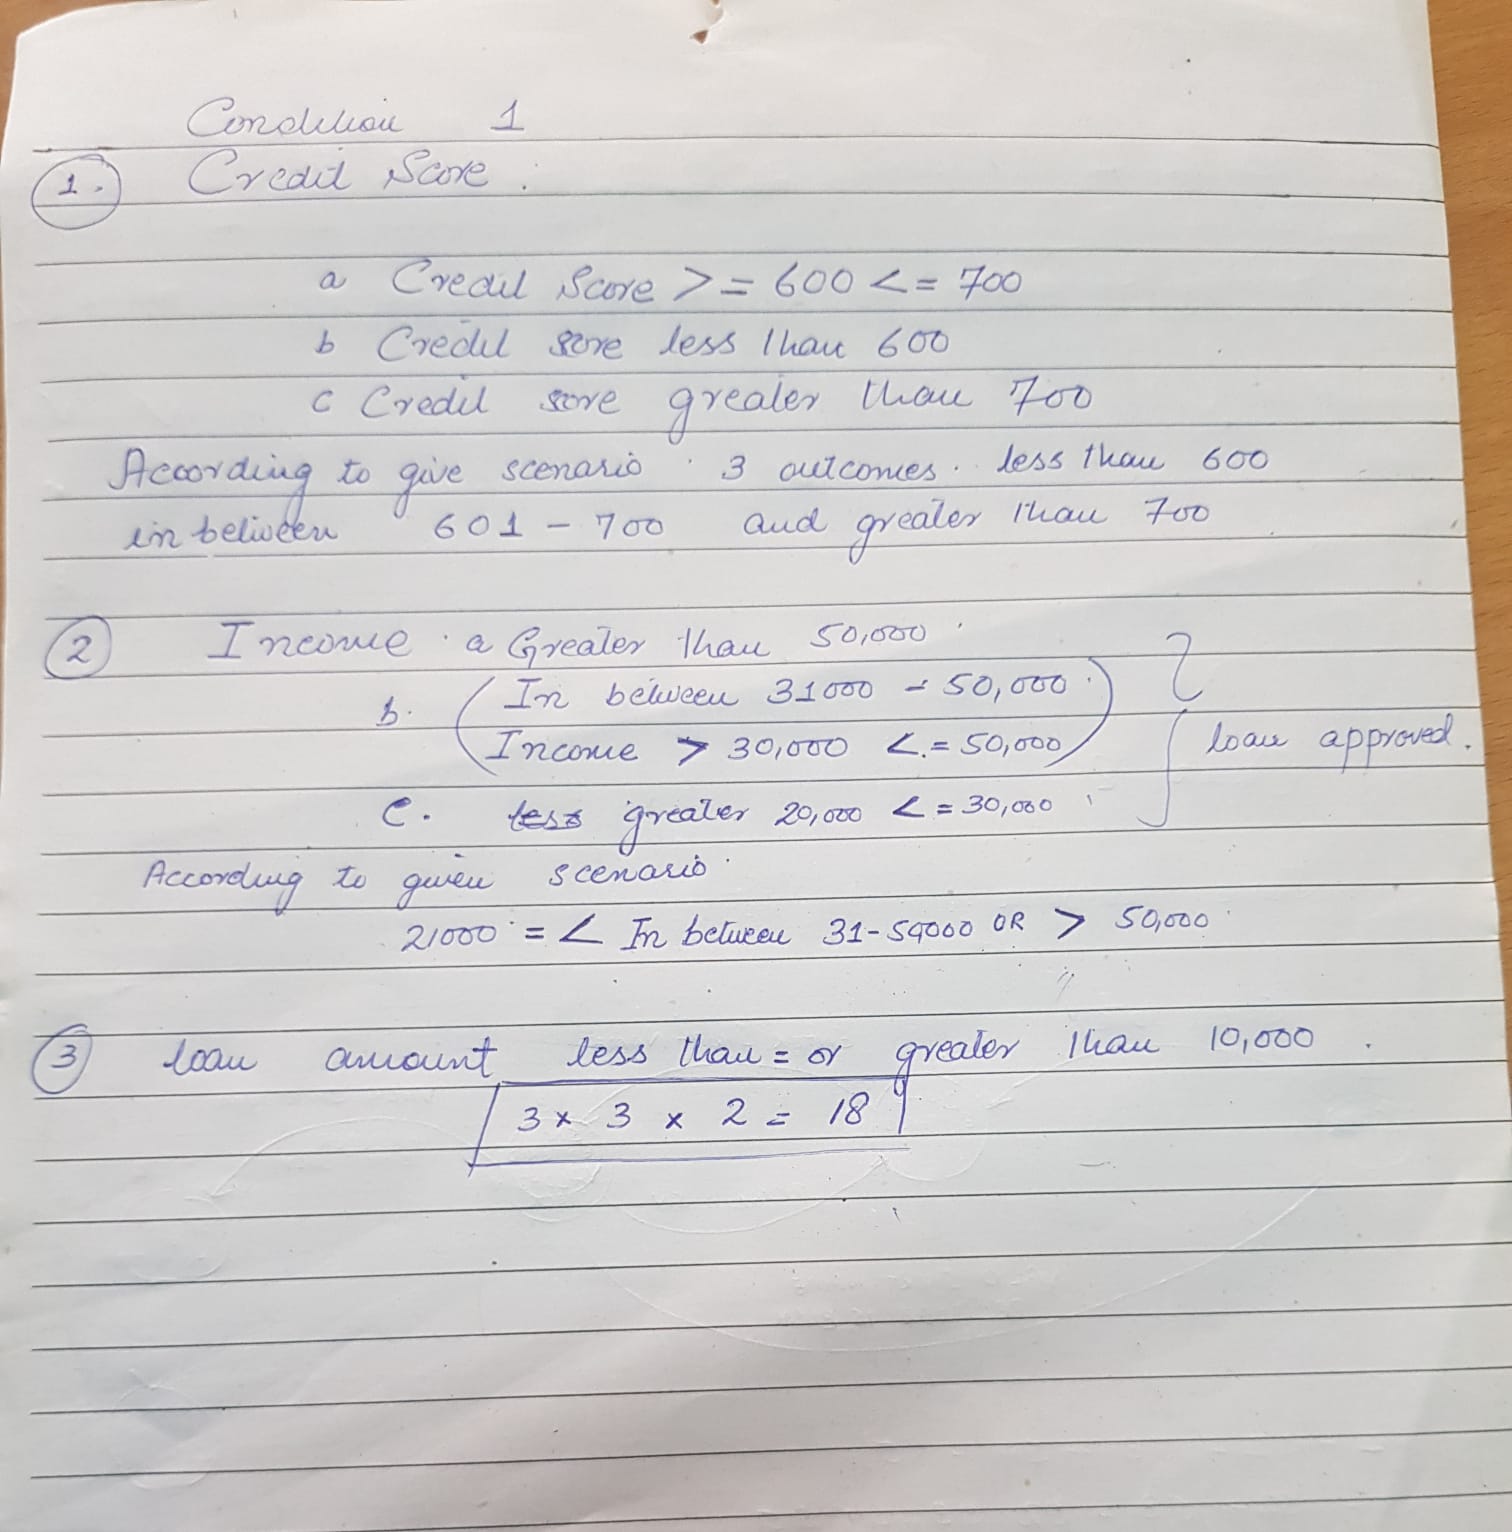 Condition 1
1. Credit Score.
a Credit Score >= 600 <= 700
b Credit score less than 600
c Credit score greater than 700
According to give scenario 3 outcomes. less than 600
in between 601 - 700 and greater than 700
2 Income a Greater than 50,000
b. (In between 31000 - 50,000)
(Income > 30,000 <= 50,000)
loan approved.
c. less greater 20,000 <= 30,000
According to given scenario
21000 = < In between 31-50000 OR > 50,000
3 loan amount less than = or greater than 10,000.
3 x 3 x 2 = 18